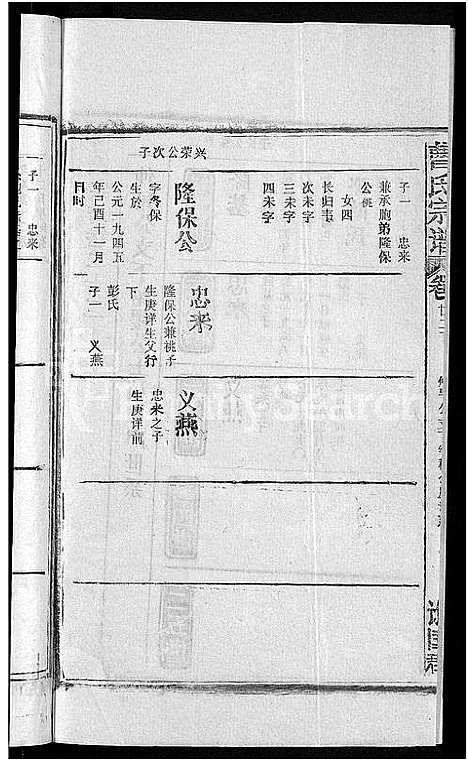 氏宗谱
卷廿二
子一 忠来
兼承胞弟隆保
公祧
女四
长归韦
次未字
三未字
四未字
兴荣公次子
隆保公
字冬保
生於
公元一九四五
年己酉十一月
日时
忠来
隆保公兼祧子
生庚详生父行
下
彭氏
子一 义燕
义燕
忠来之子
生庚详前
子一 忠来